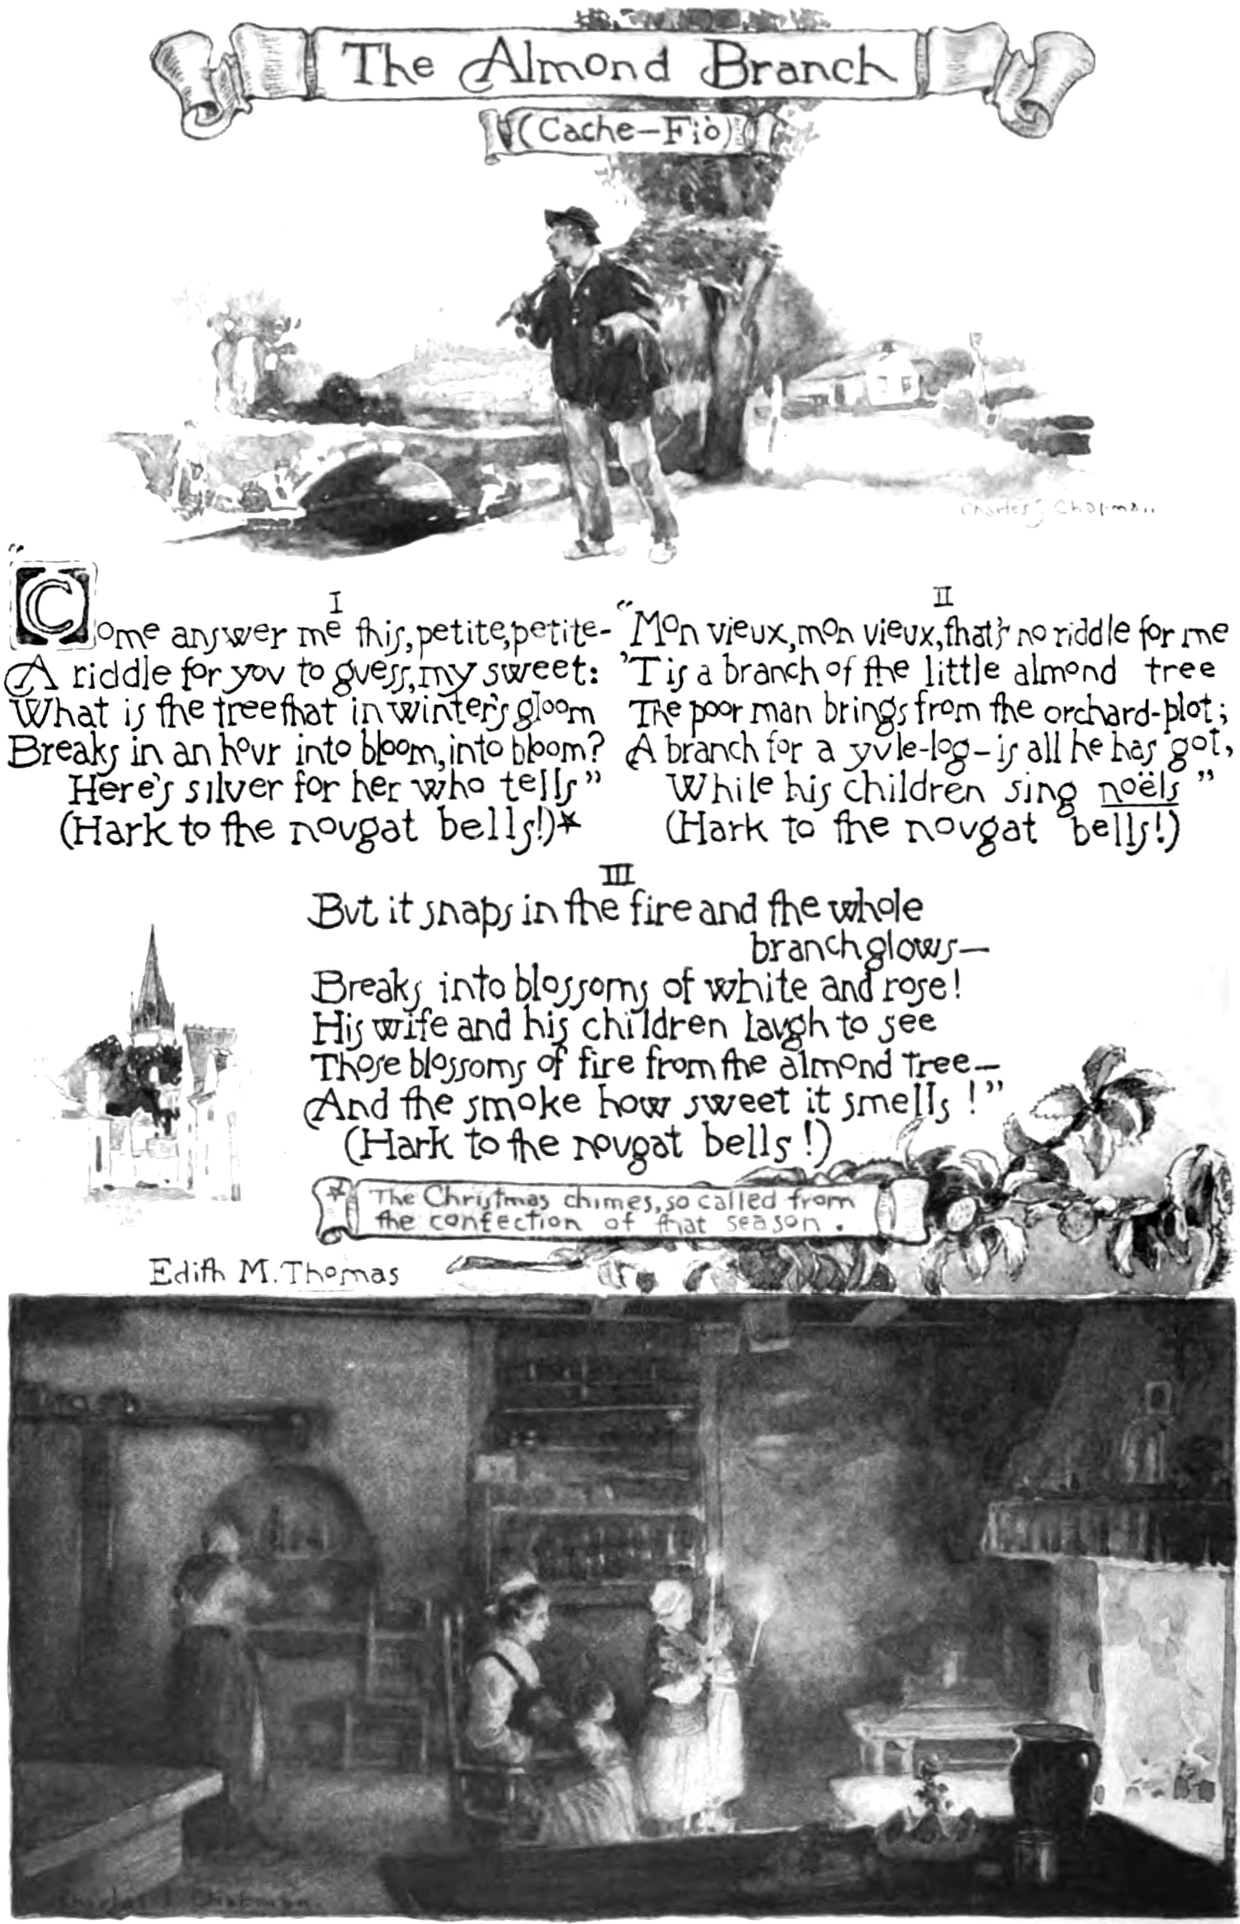 The Almond Branch
(Cache-Fiò)
Charles J Chapman
I
"Come answer me this, petite, petite-
A riddle for you to guess, my sweet:
What is the tree that in winter's gloom
Breaks in an hour into bloom, into bloom?
Here's silver for her who tells"
(Hark to the nougat bells!)*
II
"Mon vieux, mon vieux, that's no riddle for me
'Tis a branch of the little almond tree
The poor man brings from the orchard-plot;
A branch for a yule-log-is all he has got,
While his children sing noëls"
(Hark to the nougat bells!)
III
But it snaps in the fire and the whole
branch glows—
Breaks into blossoms of white and rose!
His wife and his children laugh to see
Those blossoms of fire from the almond tree—
And the smoke how sweet it smells!"
(Hark to the nougat bells!)
* The Christmas chimes, so called from
the confection of that season.
Edith M. Thomas
Charles J Chapman